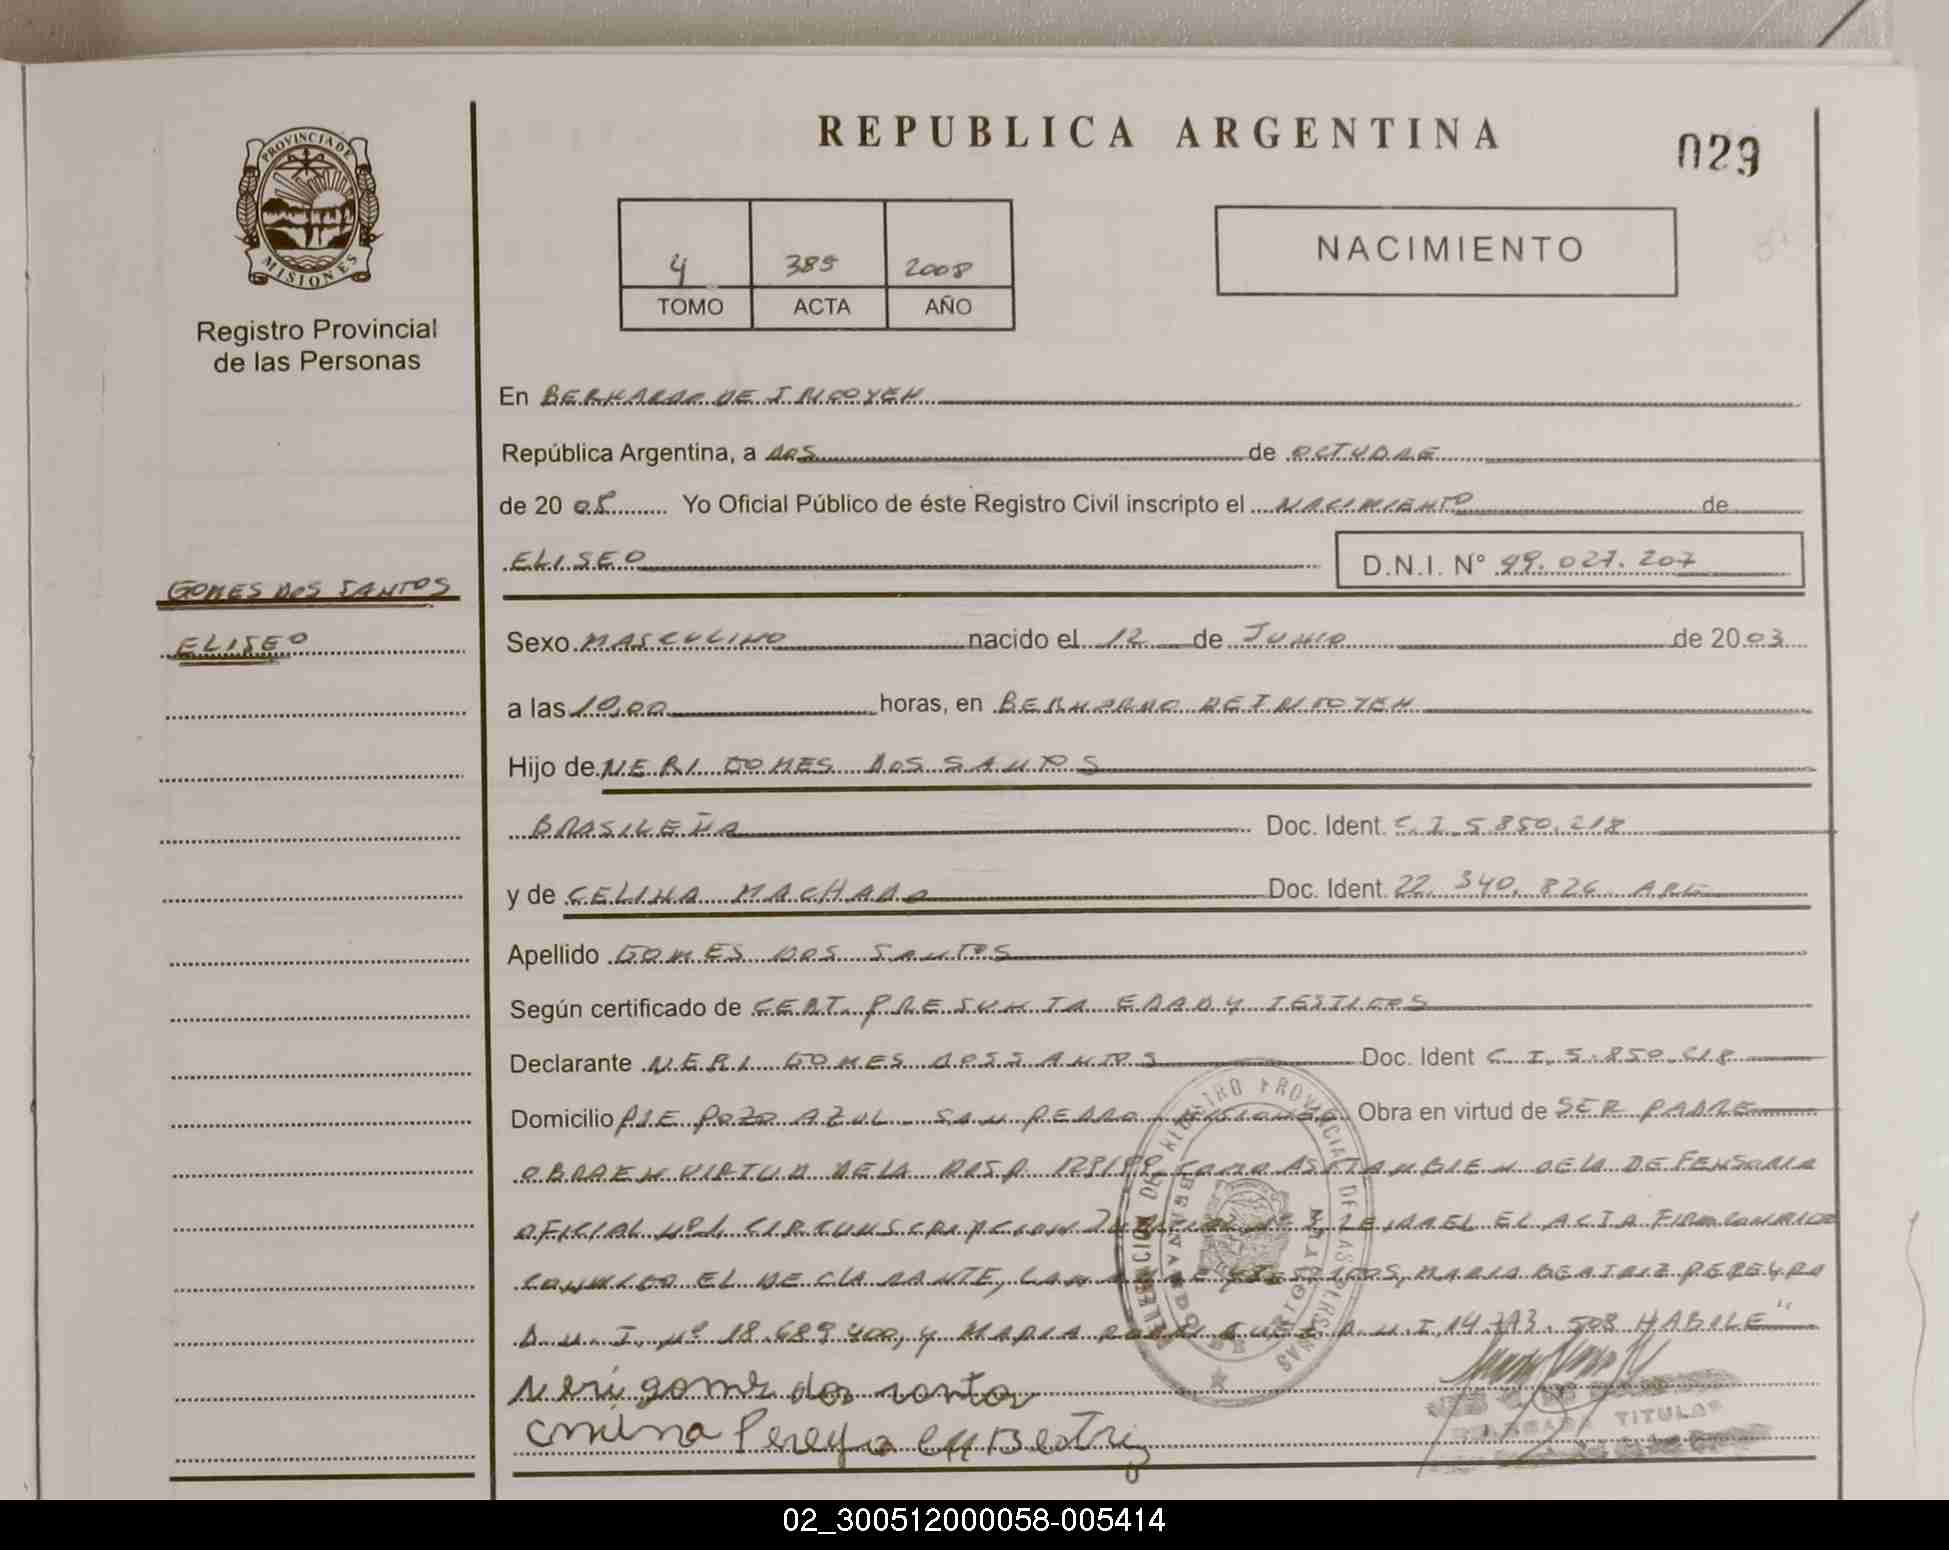 REPUBLICA ARGENTINA
029
PROVINCIA DE
MISIONES
Registro Provincial
de las Personas
4 389 2008
TOMO ACTA AÑO
NACIMIENTO
En BERNARDO DE IRIGOYEN
República Argentina, a DOS de OCTUBRE
de 20 08 Yo Oficial Público de éste Registro Civil inscripto el NACIMIENTO de
ELISEO D.N.I. N° 99.027.207
GOMES DOS SANTOS
ELISEO
Sexo MASCULINO nacido el 12 de JUNIO de 2003
a las 10,00 horas, en BERNARDO DE IRIGOYEN
Hijo de NERI GOMES DOS SANTOS
BRASILEÑA Doc. Ident. C.I. 5.850.218
y de CELINA MACHADO Doc. Ident. 22.340.826 ARG
Apellido GOMES DOS SANTOS
Según certificado de CERT. PRESUNTA EDAD Y TESTIGOS
Declarante NERI GOMES DOS SANTOS Doc. Ident C.I. 5.850.218
Domicilio PJE POZO AZUL - SAN PEDRO, MISIONES Obra en virtud de SER PADRE
OBRA EN VIRTUD DE LA COMO ASI TAMBIEN DE LA DEFENSORIA
OFICIAL Nº1 CIRCUNSCRIPCION JUDICIAL Nº 3, LEIDA EL ACTA FIRMAN
CONMIGO EL DECLARANTE, TESTIGOS, MARIA BEATRIZ PEREYRA
D.N.I. Nº 18.689.400, Y MARIA D.N.I. 14.713.508 HABILE"
neri gomes dos santos
Pereyra Beatriz
TITULAR
DELEGACION DEL REGISTRO PROVINCIAL DE LAS PERSONAS
BERNARDO DE IRIGOYEN
02_300512000058-005414